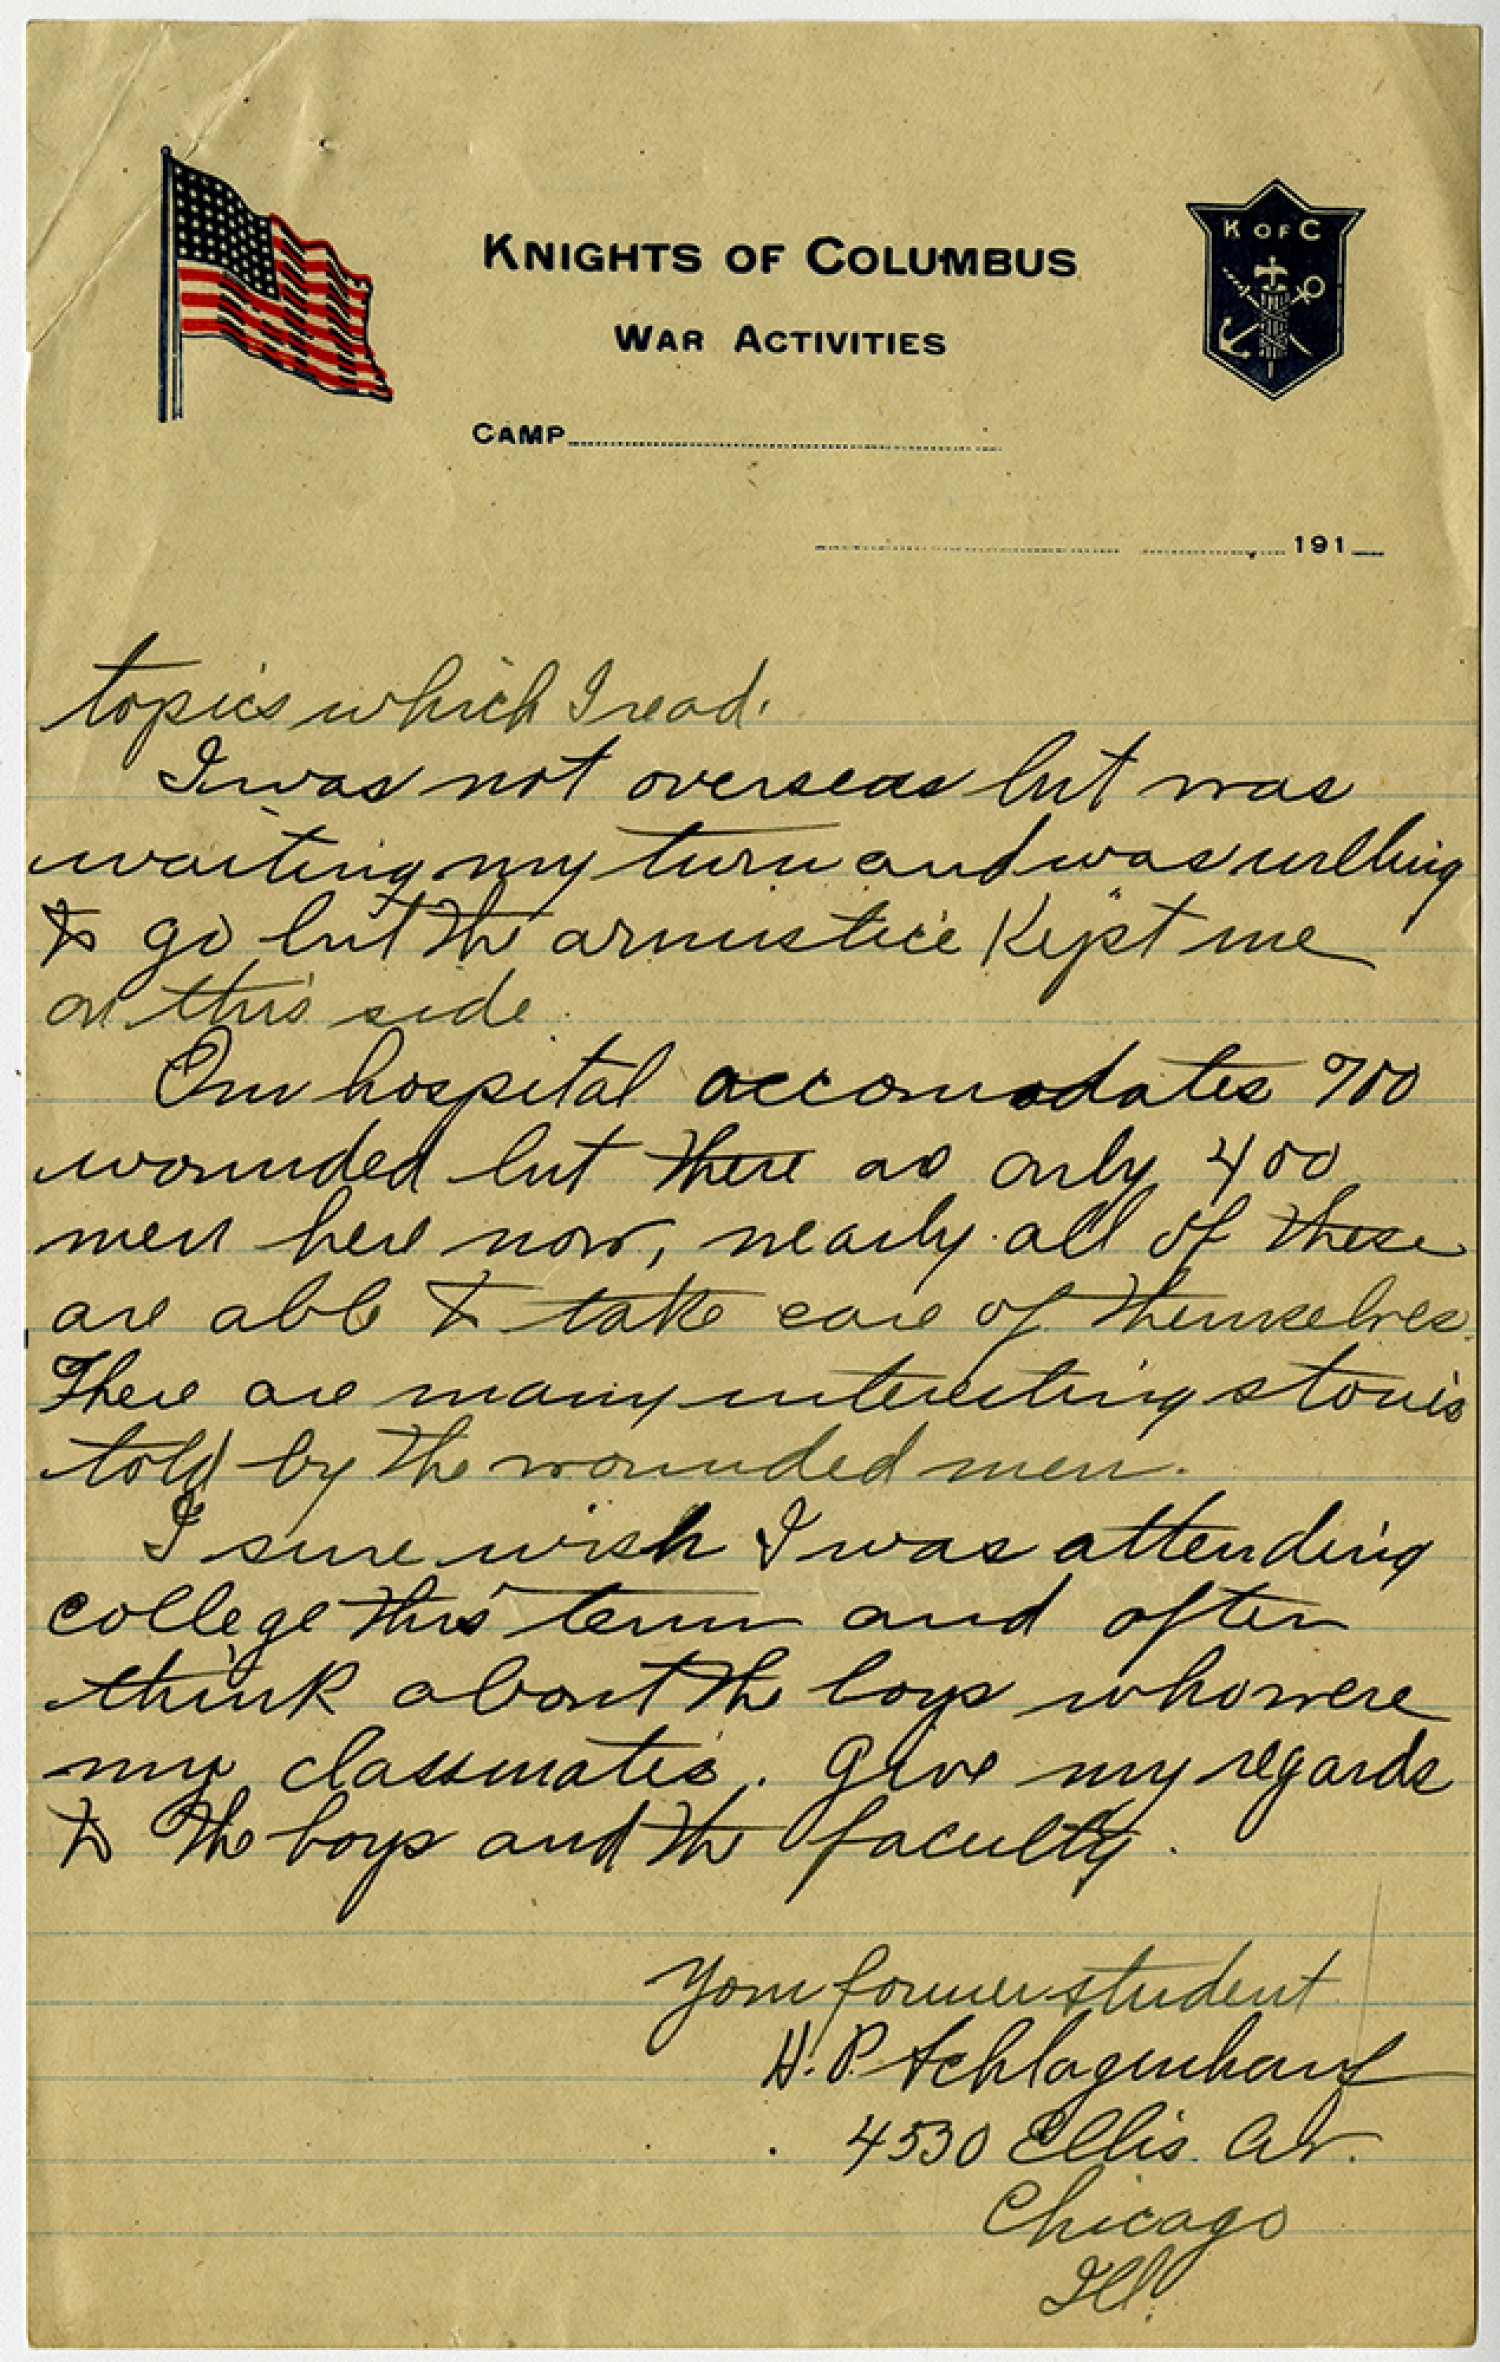 KNIGHTS OF COLUMBUS
WAR ACTIVITIES
K OF C
CAMP
191
topics which I read.
I was not overseas but was
waiting my turn and was willing
to go but the armistice kept me
on this side.
Our hospital accomodates 700
wounded but there as only 400
men here now, nearly all of these
are able to take care of themselves.
There are many interesting stories
told by the wounded men.
I sure wish I was attending
college this term and often
think about the boys who were
my classmates. Give my regards
to the boys and the faculty.
Your former student
H. P. Schlagenhauf
4530 Ellis Av.
Chicago
Ill.